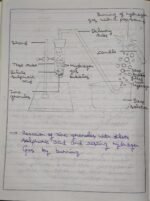 Burning of hydrogen
gas with a pop sound
Delivery
tube
Stand
Candle
Test tube
Dilute
Sulphuric
acid
Hydrogen
gas
bubbles
Zinc
granules
Soap
Solution
→ Reaction of zinc granules with dilute
sulphuric acid and testing hydrogen
gas by burning